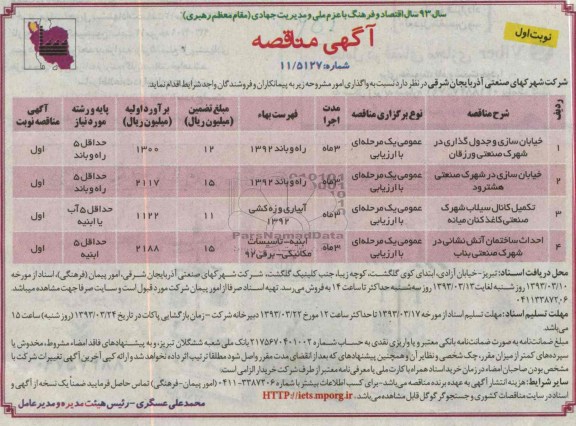 سال ۹۳ سال اقتصاد و فرهنگ با عزم ملی و مدیریت جهادی (مقام معظم رهبری)
نوبت اول
آگهی مناقصه
شماره: ۱۱/۵۱۲۷
شرکت شهرکهای صنعتی آذربایجان شرقی در نظر دارد نسبت به واگذاری امور مشروحه زیر به پیمانکاران و فروشندگان واجد شرایط اقدام نماید:
ردیف شرح مناقصه نوع برگزاری مناقصه مدت اجرا فهرست بهاء مبلغ تضمین (میلیون ریال) برآورد اولیه (میلیون ریال) پایه و رشته مورد نیاز آگهی مناقصه نوبت
۱ خیابان سازی و جدول گذاری در شهرک صنعتی ورزقان عمومی یک مرحله‌ای با ارزیابی ۳ماه راه و باند ۱۳۹۲ ۱۲ ۱۳۰۰ حداقل ۵ راه و باند اول
۲ خیابان سازی در شهرک صنعتی هشترود عمومی یک مرحله‌ای با ارزیابی ۳ماه راه و باند ۱۳۹۲ ۱۵ ۲۱۱۷ حداقل ۵ راه و باند اول
۳ تکمیل کانال سیلاب شهرک صنعتی کاغذکنان میانه عمومی یک مرحله‌ای با ارزیابی ۳ماه آبیاری و زه کشی ۱۳۹۲ ۱۱ ۱۱۲۲ حداقل ۵ آب یا ابنیه اول
۴ احداث ساختمان آتش نشانی در شهرک صنعتی بناب عمومی یک مرحله‌ای با ارزیابی ۳ماه ابنیه-تاسیسات مکانیکی-برقی ۹۲ ۱۵ ۲۱۸۸ حداقل ۵ ابنیه اول
محل دریافت اسناد: تبریز-خیابان آزادی، ابتدای کوی گلگشت، کوچه زیبا، جنب کلینیک گلگشت، شرکت شهرکهای صنعتی آذربایجان شرقی، امور پیمان (فرهنگی)، اسناد از مورخه
۱۳۹۳/۰۳/۱۰ روز شنبه لغایت ۱۳۹۳/۰۳/۱۳ روز سه شنبه حداکثر تا ساعت ۱۴ به فروش می‌رسد. تهیه اسناد صرفا از امور پیمان شرکت مورد قبول است و سایت صرفا جهت مشاهده میباشد.
۰۴۱۱۳۳۸۷۲۰۶
مهلت تسلیم اسناد: مهلت تسلیم اسناد از مورخه ۱۳۹۳/۰۳/۱۷ تا حداکثر ساعت ۱۲ مورخ ۱۳۹۳/۰۳/۲۲ دبیرخانه شرکت-زمان بازگشایی پاکات در تاریخ ۱۳۹۳/۰۳/۲۴ (روز شنبه) ساعت ۱۵
می‌باشد.
مبلغ ضمانت نامه به صورت ضمانت نامه بانکی معتبر و یا واریزی نقدی به حساب شماره ۲۱۷۵۶۷۰۴۰۱۰۰۲ بانک ملی شعبه ششگلان تبریز، و به پیشنهادهای فاقد امضاء مشروط، مخدوش یا
سپرده‌های کمتر از میزان مقرر، چک شخصی و نظایر آن و همچنین پیشنهادهای که بعد از انقضای مدت مقرر واصل شود مطلقا ترتیب اثر داده نخواهد شد و ارائه کپی آخرین آگهی تغییرات شرکت با
مشخص بودن صاحبان امضاء در زمان خرید اسناد همراه با کارت ملی یا معرفی نامه معتبر از طرف شرکت خریدار الزامی است.
سایر شرایط: هزینه انتشار آگهی به عهده برنده مناقصه می‌باشد-برای کسب اطلاعات بیشتر با شماره ۳۳۸۷۲۰۶-۰۴۱۱ (امور پیمان-فرهنگی) تماس حاصل فرمایید ضمناً یک نسخه از آگهی و
اسناد در سایت مناقصات کشوری و جستجوگر گوگل قابل مشاهده می‌باشد. HTTP://iets.mporg.ir
محمدعلی عسگری-رئیس هیئت مدیره و مدیرعامل
ParsNamadData